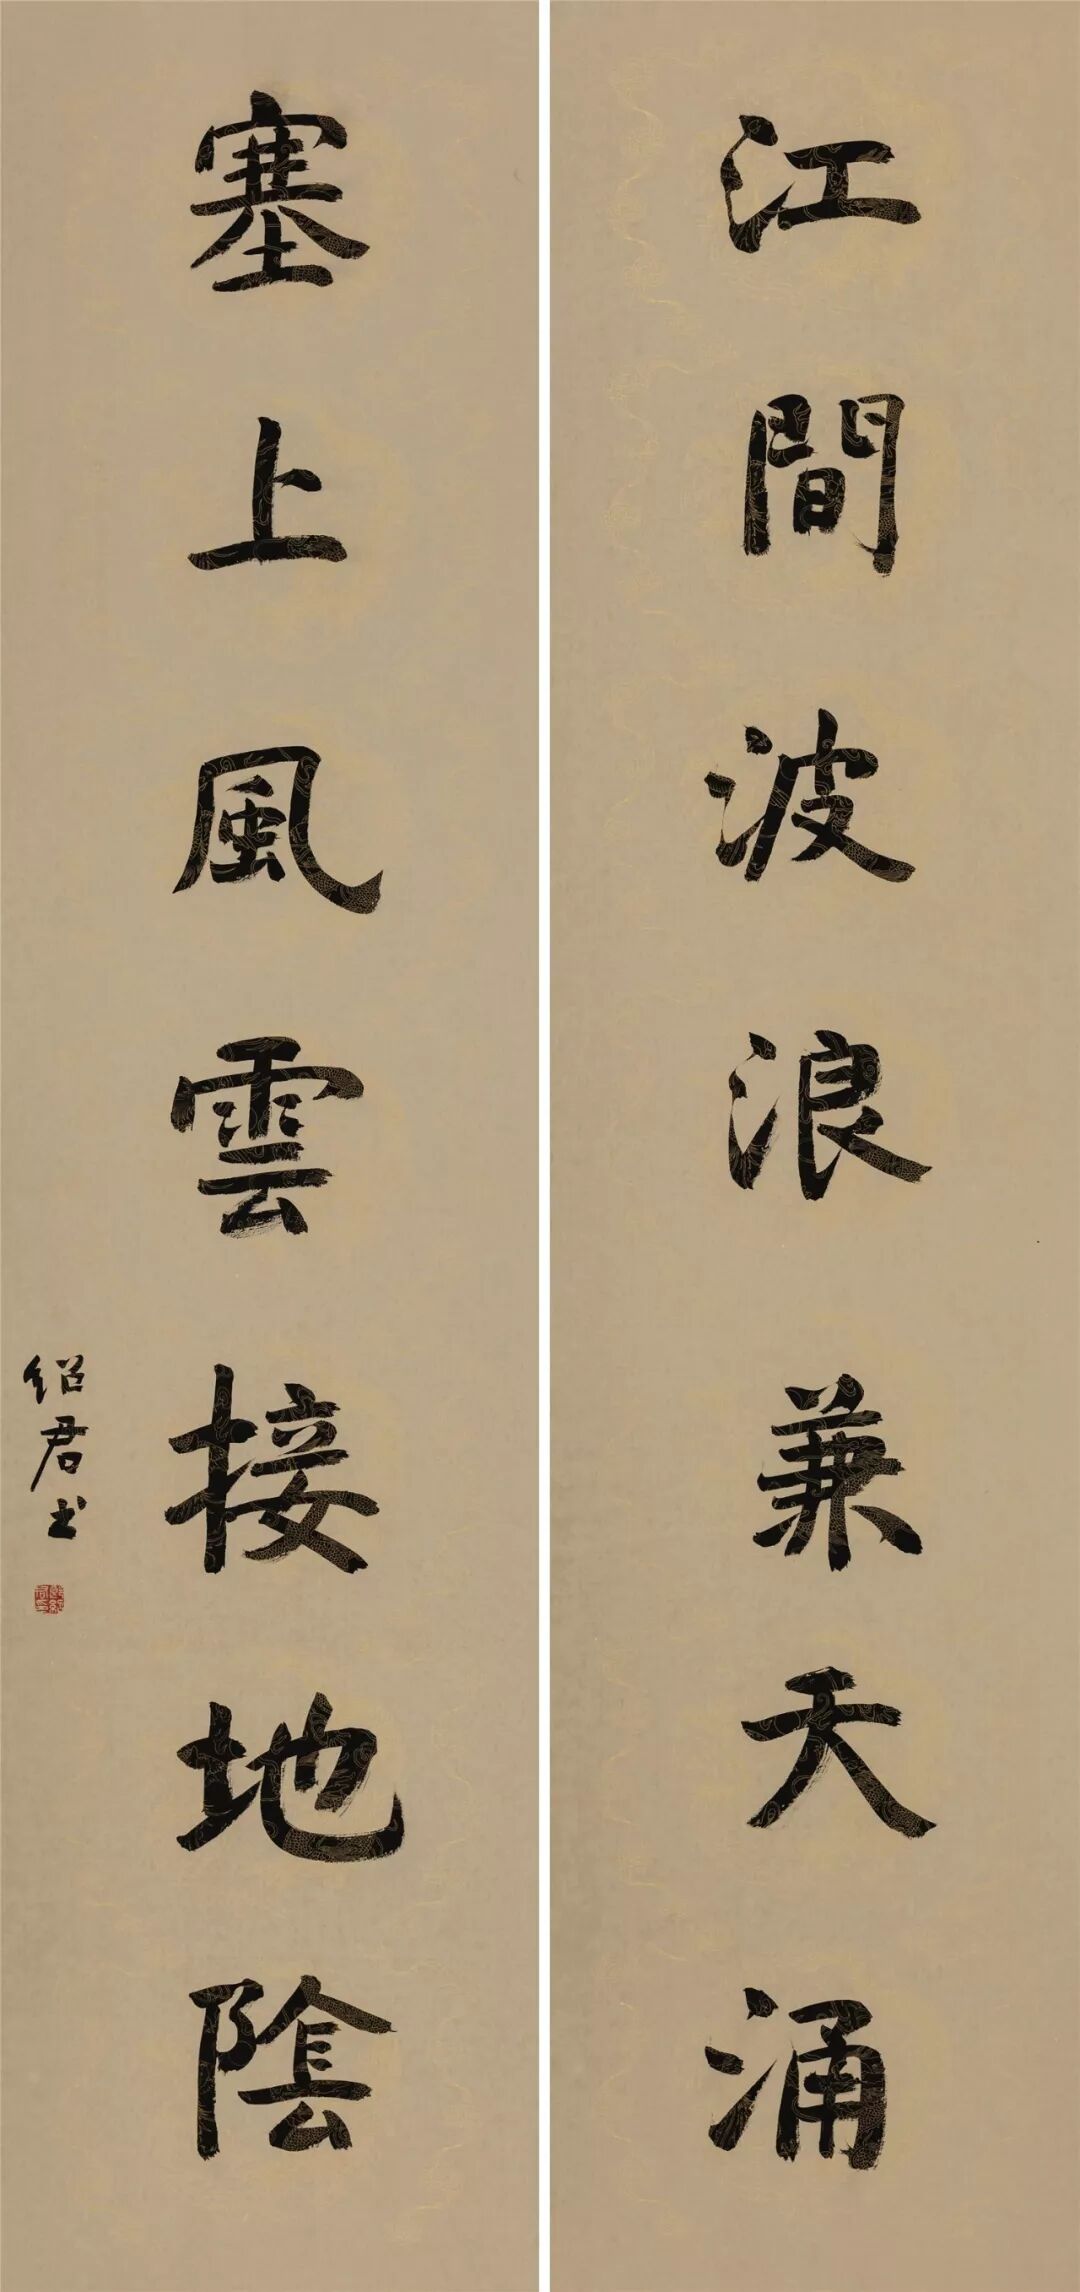 江間波浪兼天涌
塞上風雲接地陰
绍君书